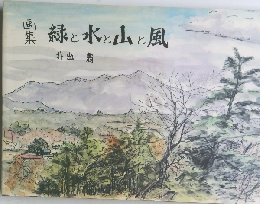 画集
緑と水と山と風